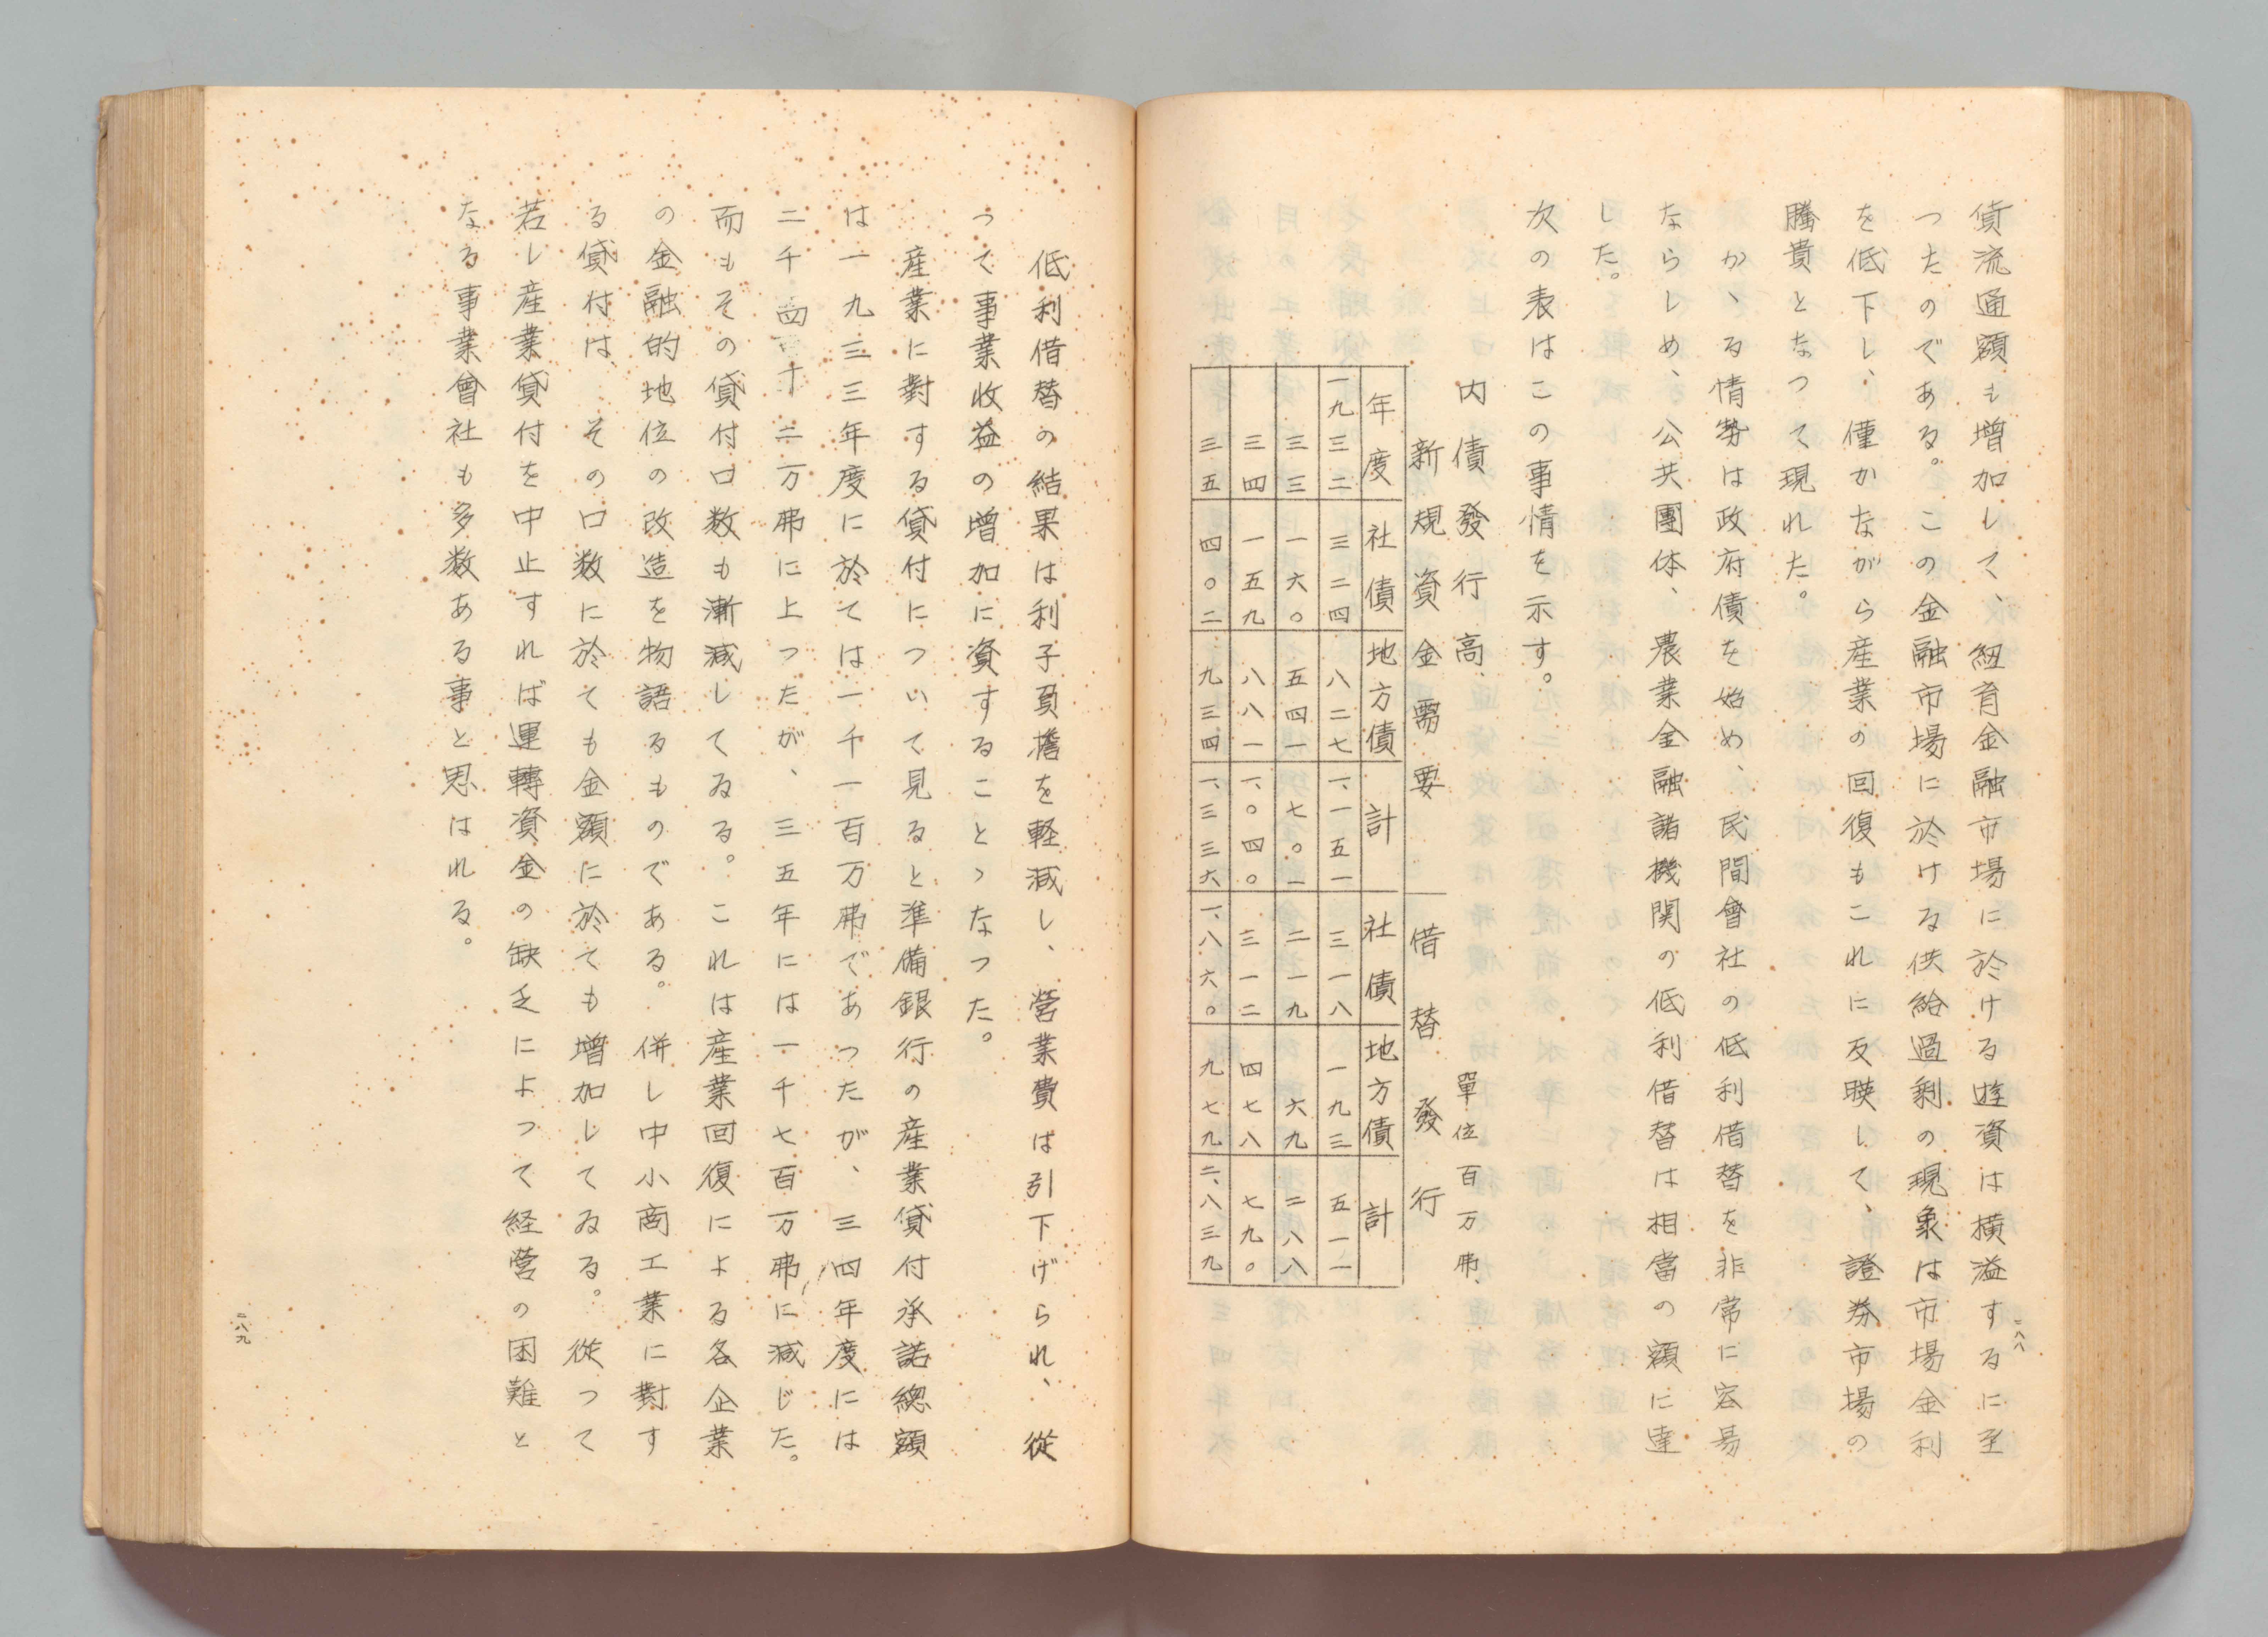 債流通額も増加して、紐育金融市場に於ける遊資は横溢するに至
つたのである。この金融市場に於ける供給過剰の現象は市場金利
を低下し、僅かながら産業の回復もこれに反映して、證券市場の
騰貴となつて現れた。
かゝる情勢は政府債を始め、民間會社の低利借替を非常に容易
ならしめ、公共團体、農業金融諸機関の低利借替は相當の額に達
した。
次の表はこの事情を示す。
内債發行高、單位百万弗、
新規資金需要 借替發行
年度 社債 地方債 計 社債 地方債 計
一九三二 三二四 八二七 一、一五一 三一八 一九三 五一一
三三 一六〇 五四一 七〇一 二一九 六九 二八八
三四 一五九 八八一 一、〇四〇 三一二 四七八 七九〇
三五 四〇二 九三四 一、三三六 一、八六〇 九七九 二、八三九
二八八
低利借替の結果は利子負擔を軽減し、営業費は引下げられ、從
つて事業收益の増加に資することゝなつた。
産業に對する貸付について見ると準備銀行の産業貸付承諾總額
は一九三三年度に於ては一千一百万弗であつたが、三四年度には
二千四百十二万弗に上つたが、三五年には一千七百万弗に減じた。
而もその貸付口数も漸減してゐる。これは産業回復による各企業
の金融的地位の改造を物語るものである。併し中小商工業に對す
る貸付は、その口数に於ても金額に於ても増加してゐる。從つて
若し産業貸付を中止すれば運轉資金の缺乏によつて経営の困難と
なる事業會社も多数ある事と思はれる。
二八九